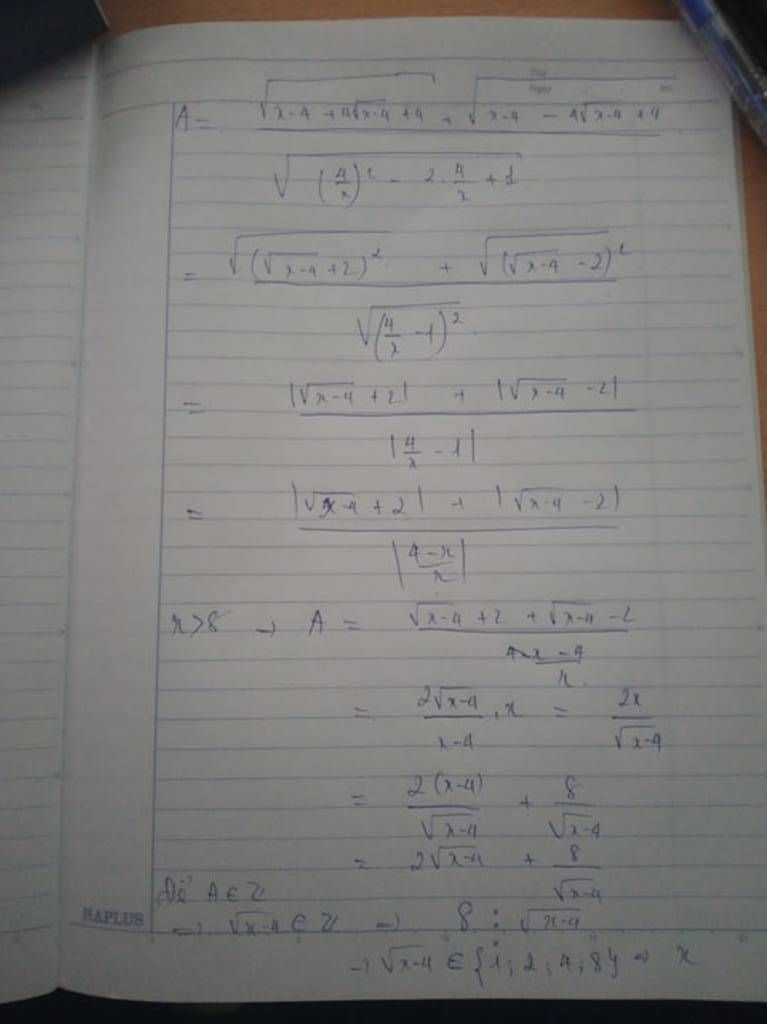 A = (√(x-4 + 4√(x-4) + 4) + √(x-4 - 4√(x-4) + 4)) / √((4/x)² - 2.4/x + 1)
= (√((√(x-4) + 2)²) + √((√(x-4) - 2)²)) / √((4/x - 1)²)
= (|√(x-4) + 2| + |√(x-4) - 2|) / |4/x - 1|
= (|√(x-4) + 2| + |√(x-4) - 2|) / |(4-x)/x|
x>8 → A = (√(x-4) + 2 + √(x-4) - 2) / ((x-4)/x)
= (2√(x-4))/(x-4) . x = 2x/√(x-4)
= 2(x-4)/√(x-4) + 8/√(x-4)
= 2√(x-4) + 8/√(x-4)
Để A ∈ Z
=> √(x-4) ∈ Z => 8 ⋮ √(x-4)
→ √(x-4) ∈ {1; 2; 4; 8} => x
HAPLUS